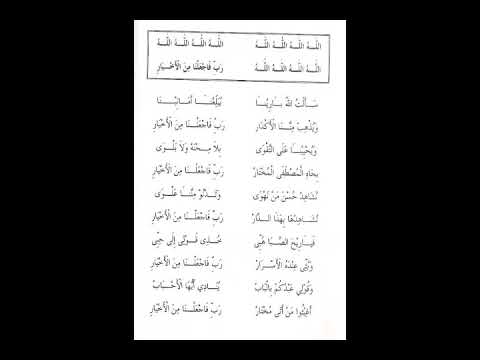 اَللّٰهُ اَللّٰهُ اَللّٰهُ اَللّٰهُ اَللّٰهُ اَللّٰهُ اَللّٰهُ اَللّٰهُ
اَللّٰهُ اَللّٰهُ اَللّٰهُ اَللّٰهُ رَبِّ فَاجْعَلْنَا مِنَ الْأَخْيَارِ
سَأَلْتُ اللّٰهَ بَارِيْنَا يُبَلِّغُنَا أَمَانِيْنَا
وَيُذْهِبْ مِنَّا الْأَكْدَارِ رَبِّ فَاجْعَلْنَا مِنَ الْأَخْيَارِ
وَيُحْيِيْنَا عَلَى التَّقْوَى بِلَا مِحْنَةْ وَلَا بَلْوَى
بِجَاهِ الْمُصْطَفَى الْمُخْتَارْ رَبِّ فَاجْعَلْنَا مِنَ الْأَخْيَارِ
نُشَاهِدْ حُسْنَ مَنْ نَهْوَى وَتَدْنُوْ مِنَّا عَلْوَى
نُشَاهِدْهَا بِهٰذَا الدَّارْ رَبِّ فَاجْعَلْنَا مِنَ الْأَخْيَارِ
فَيَارِيْحَ الصَّبَا هُبِّى خُذِى قَوْلِى إِلَى حِبِّى
وَنُبِّى عِنْدَهُ الْأَسْرَارْ رَبِّ فَاجْعَلْنَا مِنَ الْأَخْيَارِ
وَقُوْلِي عَبْدُكُمْ بِالْبَابْ يُنَادِي أَيُّهَا الْأَحْبَابْ
أَغِيْثُوا مَنْ أَتَى مُحْتَارْ رَبِّ فَاجْعَلْنَا مِنَ الْأَخْيَارِ